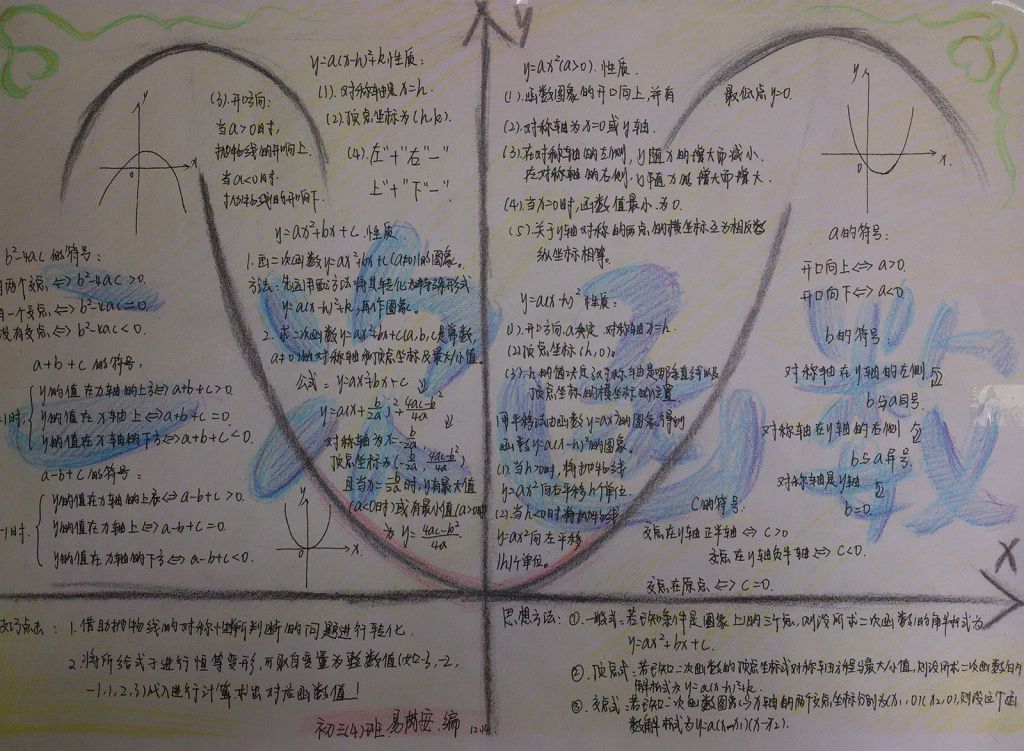 y
x
y
x
0
(3).开口方向:
当a>0时,
抛物线的开口向上.
当a<0时.
抛物线的开口向下.
y=a(x-h)²+k.性质:
(1).对称轴是x=h.
(2).顶点坐标为(h,k).
(4).左"+"右"-"
上"+"下"-"
y=ax²+bx+c.性质
1.画二次函数y=ax²+bx+c(a≠0)的图象。
方法:先运用配方法将其转化为
形式
y=a(x-h)²+k,再作图象。
2.求二次函数y=ax²+bx+c(a,b,c是常数,
a≠0)的对称轴和顶点坐标及最大/小值。
公式=y=ax²+bx+c
y=a(x+b/2a)²+4ac-b²/4a
对称轴为x=-b/2a
顶点坐标为(-b/2a,4ac-b²/4a)
且当x=-b/2a时,y有最大值
(a<0时)或有最小值(a>0时)
为y=4ac-b²/4a.
y
x.
0
b²-4ac的符号:
两个交点⇔b²-4ac>0.
一个交点⇔b²-4ac=0.
没有交点⇔b²-4ac<0.
a+b+c的符号:
1时.
y的值在x轴的上方⇔a+b+c>0.
y的值在x轴上⇔a+b+c=0.
y的值在x轴的下方⇔a+b+c<0.
a-b+c的符号:
-1时.
y的值在x轴的上方⇔a-b+c>0.
y的值在x轴上⇔a-b+c=0.
y的值在x轴的下方⇔a-b+c<0.
y=ax²(a>0).性质.
(1).函数图象的开口向上,并有
最低点y=0.
(2).对称轴为x=0或y轴.
(3).在对称轴的左侧,y随x的增大而减小.
在对称轴的右侧,y随x的增大而增大.
(4).当x=0时,函数值最小.为0.
(5).关于y轴对称的两点的横坐标互为相反数
纵坐标相等.
y=a(x-h)²性质:
(1).开口方向.a决定.对称轴x=h.
(2)顶点坐标(h,0).
(3).h的值决定了对称轴是哪条直线以及
顶点坐标的横坐标的位置.
用平移法由函数y=ax²的图象得到
函数y=a(x-h)²的图象。
(1).当h>0时,将抛物线
y=ax²向右平移h个单位.
(2).当h<0时将抛物线
y=ax²向左平移
|h|个单位。
y
x.
0
a的符号:
开口向上⇔a>0.
开口向下⇔a<0.
b的符号:
对称轴在y轴的左侧
b与a同号.
对称轴在y轴的右侧
b与a异号.
对称轴是y轴
b=0.
C的符号:
交点在y轴正半轴⇔C>0
交点在y轴负半轴⇔C<0.
交点在原点⇔C=0.
数
点击:1.借助抛物线的对称性
判断的问题进行转化.
2.将所给式子进行恒等变形,可取自变量为整数值(如-3,-2,
-1,1,2,3)代入进行计算求出对应函数值!
初三(4)班
编
思想方法:①.一般式:若已知条件是图象上的三个点,则设所求二次函数的解析式为
y=ax²+bx+c.
②.顶点式:若已知二次函数的顶点坐标或对称轴方程与最大/小值,则设所求二次函数的
解析式为y=a(x-h)²+k.
③.交点式:若已知二次函数图象与x轴的两个交点坐标分别为(x₁,0)(x₂,0),则设这个函
数解析式为y=a(x-x₁)(x-x₂).